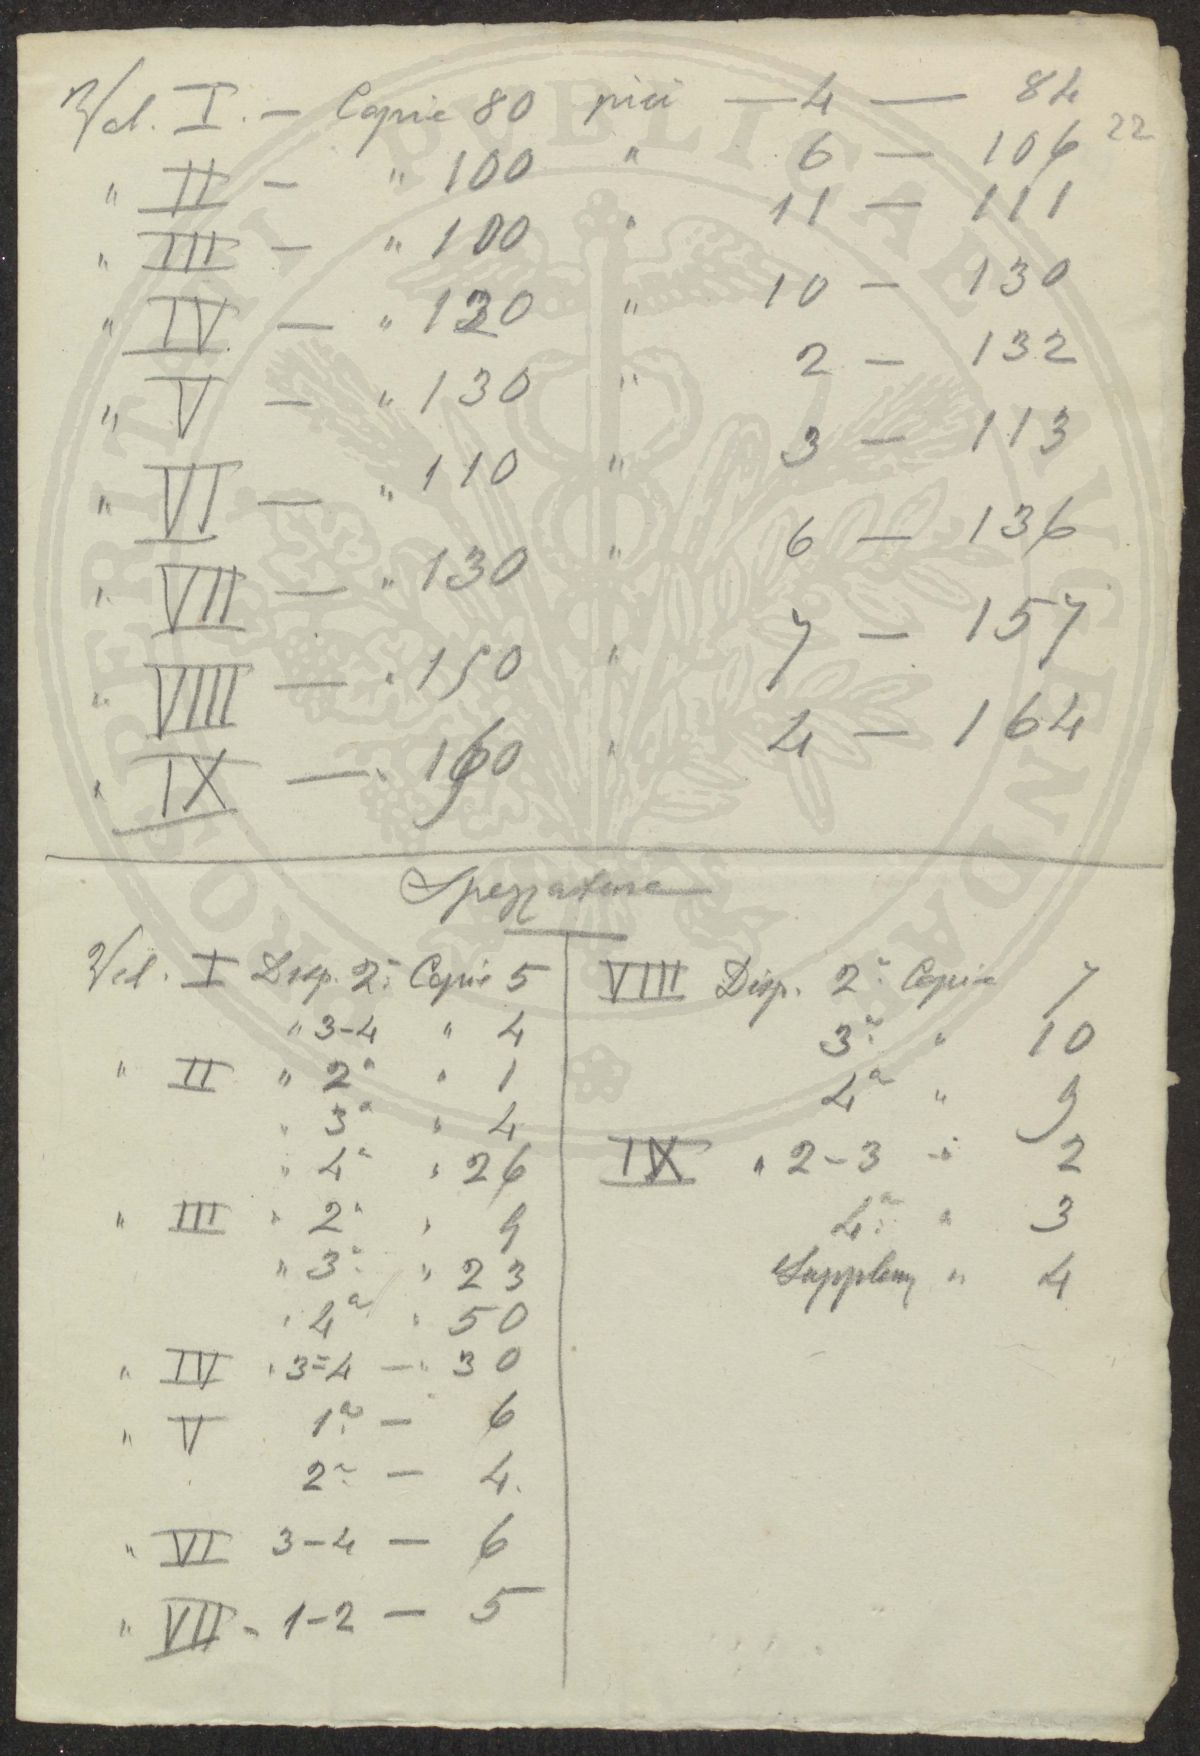 Vol. I. — Copie 80 più — 4 — 84
22
" II — " 100 " 6 — 106
" III — " 100 " 11 — 111
" IV — " 120 " 10 — 130
" V — " 130 " 2 — 132
" VI — " 110 " 3 — 113
" VII — " 130 " 6 — 136
" VIII — " 150 " 7 — 157
" IX — " 160 " 4 — 164
Spezzature
Vol. I Disp. 2ª Copie 5
" 3-4 " 4
" II " 2ª " 1
" 3ª " 4
" 4ª " 26
" III " 2ª " 9
" 3ª " 23
" 4ª " 50
" IV " 3=4 — " 30
" V 1ª — 6
2ª — 4.
" VI 3-4 — 6
" VII - 1-2 — 5
VIII Disp. 2ª Copie 7
3ª " 10
4ª " 9
IX " 2-3 " 2
4ª " 3
Supplem " 4